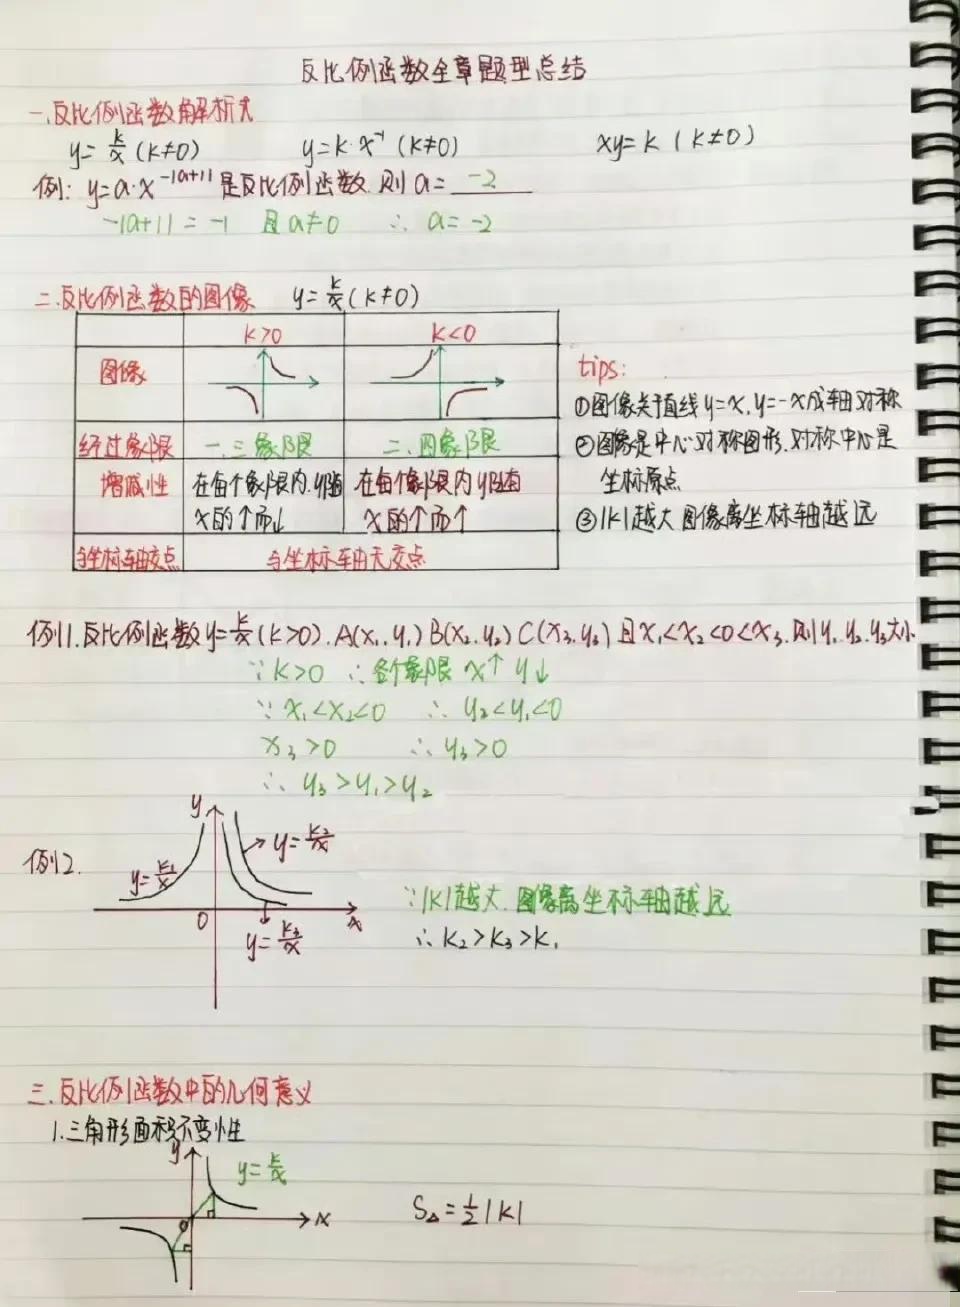 反比例函数全章题型总结
一.反比例函数解析式
y=k/x(k≠0) y=k·x⁻¹(k≠0) xy=k(k≠0)
例: y=a·x^(-|a+1|)是反比例函数.则a=-2
-|a+1|=-1 且a≠0 ∴ a=-2
二.反比例函数的图像 y=k/x(k≠0)
k>0 k<0
图像
经过象限 一.三象限 二.四象限
增减性 在每个象限内.y随 在每个象限内y随
x的↑而↓ x的↑而↑
与坐标轴交点 与坐标轴无交点
tips:
①图像关于直线y=x.y=-x成轴对称
②图像是中心对称图形.对称中心是
坐标原点
③|k|越大 图像离坐标轴越远
例1.反比例函数y=k/x(k>0).A(x₁,y₁)B(x₂,y₂)C(x₃,y₃)且x₁<x₂<0<x₃.则y₁.y₂.y₃大小
∵k>0 ∴各个象限 x↑ y↓
∵x₁<x₂<0 ∴ y₂<y₁<0
x₃>0 ∴ y₃>0
∴ y₃>y₁>y₂
例2.
y
y=k₁/x
y=k₂/x
O
x
y=k₃/x
∵|k|越大.图像离坐标轴越远
∴k₂>k₃>k₁
三.反比例函数中的几何意义
1.三角形面积不变性
y
y=k/x
O
x
S△=½|k|